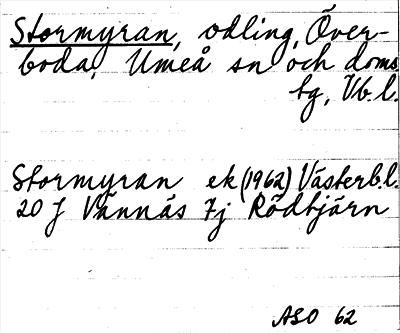 Stormyran, odling, Över-
boda, Umeå sn och doms
tg, Vb.l.
Stormyran ek (1962) Västerb.l.
20 J Vännäs 7j Rödtjärn
ASO 62